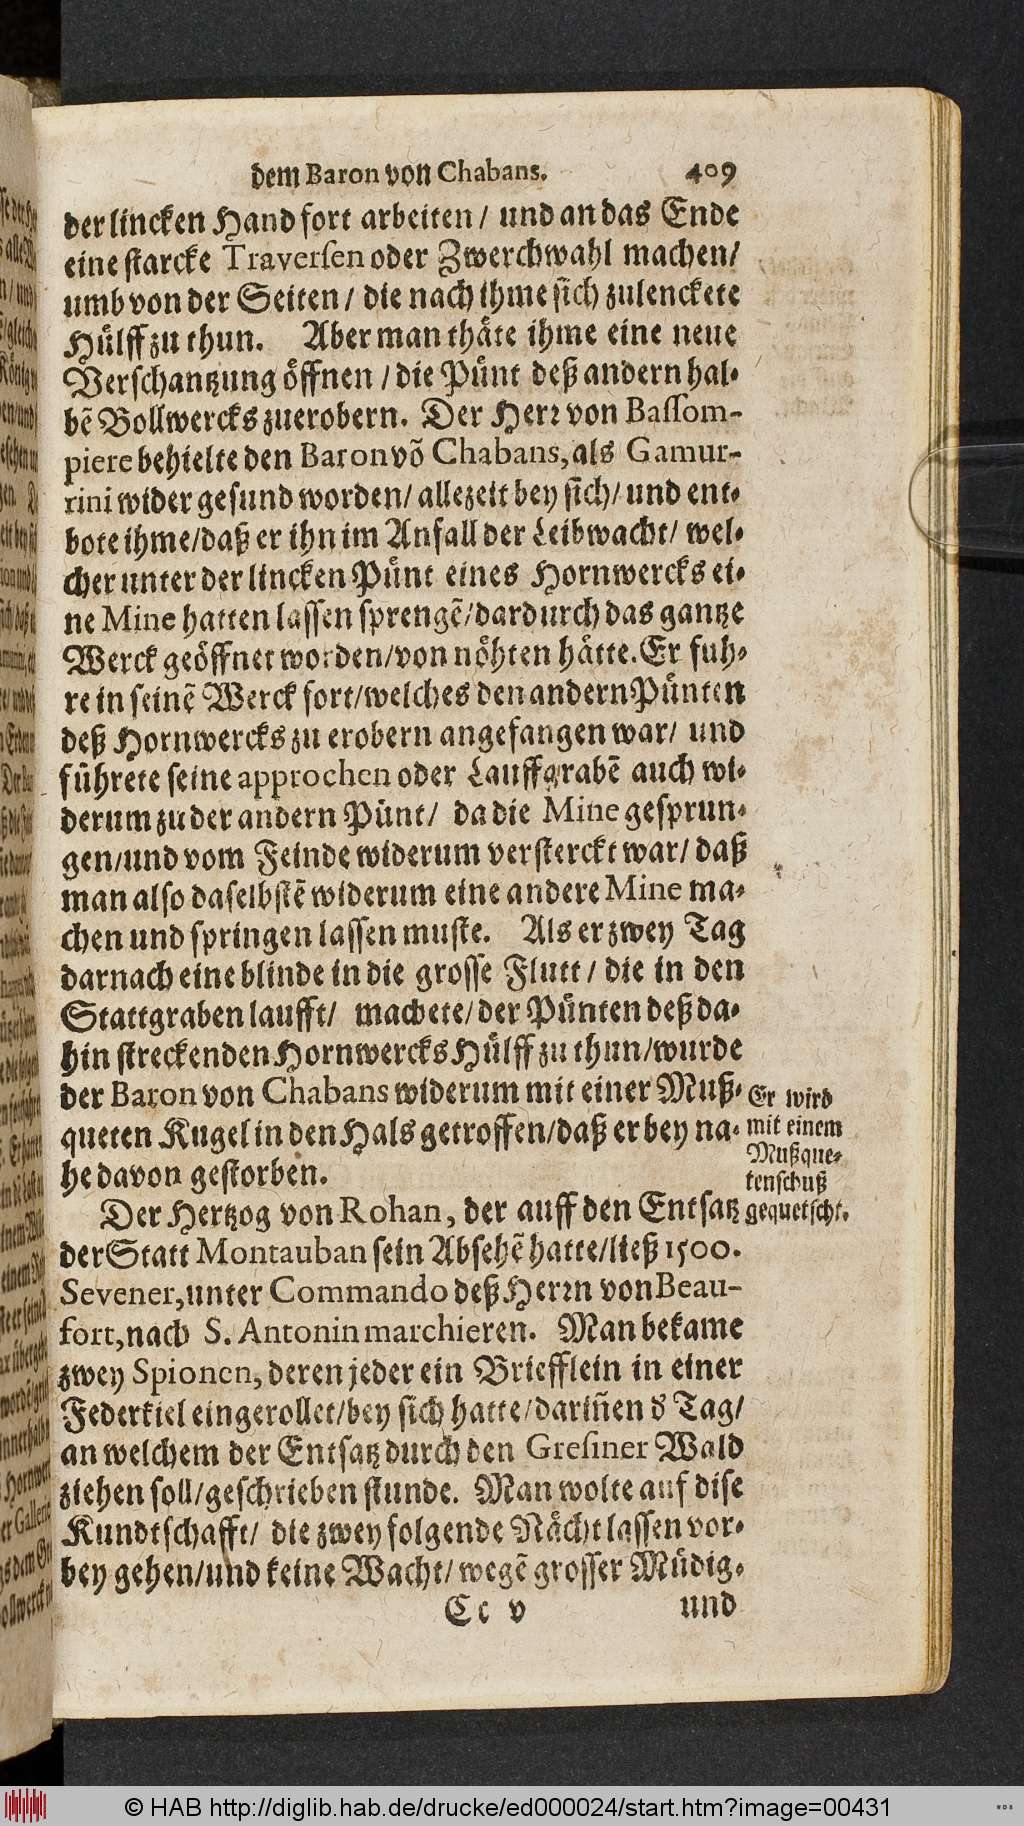 dem Baron von Chabans. 409
der lincken Hand fort arbeiten / und an das Ende
eine starcke Traversen oder Zwerchwahl machen/
umb von der Seiten / die nach ihme sich zulenckete
Hülff zu thun. Aber man thäte ihme eine neue
Verschantzung öffnen / die Pünt deß andern hal-
bẽ Bollwercks zuerobern. Der Herr von Bassom-
piere behielte den Baron võ Chabans, als Gamur-
rini wider gesund worden/ allezeit bey sich/ und ent-
bote ihme/daß er ihn im Anfall der Leibwacht/ wel-
cher unter der lincken Pünt eines Hornwercks ei-
ne Mine hatten lassen sprengẽ/dardurch das gantze
Werck geöffnet worden/von nöhten hätte. Er fuh-
re in seinẽ Werck fort/welches den andern Pünten
deß Hornwercks zu erobern angefangen war/ und
führete seine approchen oder Lauffgrabẽ auch wi-
derum zu der andern Pünt/ da die Mine gesprun-
gen/und vom Feinde widerum versterckt war/ daß
man also daselbstẽ widerum eine andere Mine ma-
chen und springen lassen muste. Als er zwey Tag
darnach eine blinde in die grosse Flutt / die in den
Stattgraben laufft/ machete/ der Pünten deß da-
hin streckenden Hornwercks Hülff zu thun/wurde
der Baron von Chabans widerum mit einer Muß-
queten Kugel in den Hals getroffen/daß er bey na-
he davon gestorben.
Er wird
mit einem
Mußque-
tenschuß
gequetscht.
Der Hertzog von Rohan, der auff den Entsatz
der Statt Montauban sein Absehẽ hatte/ließ 1500.
Sevener, unter Commando deß Herrn von Beau-
fort, nach S. Antonin marchieren. Man bekame
zwey Spionen, deren jeder ein Briefflein in einer
Federkiel eingerollet/bey sich hatte/dariñen d Tag/
an welchem der Entsatz durch den Gresiner Wald
ziehen soll/geschrieben stunde. Man wolte auf dise
Kundtschafft/ die zwey folgende Nächt lassen vor-
bey gehen/und keine Wacht/ wegẽ grosser Müdig-
Cc v und
© HAB http://diglib.hab.de/drucke/ed000024/start.htm?image=00431